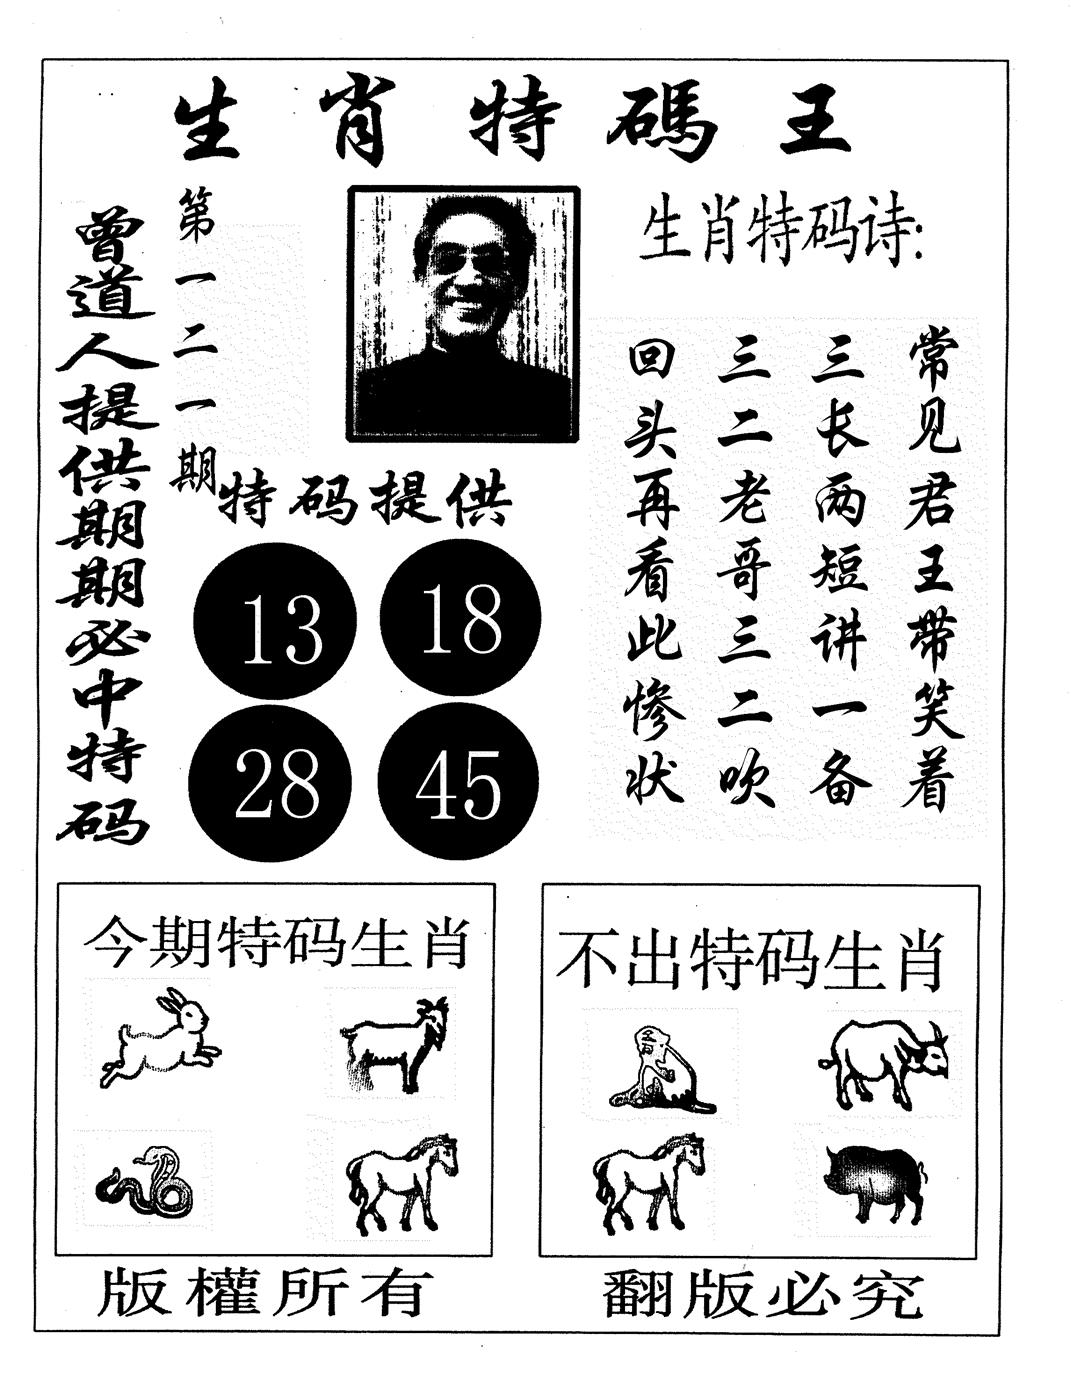 生肖特碼王
曾道人提供期期必中特码
第一二一期
生肖特码诗:
常见君王带笑着
三长两短讲一备
三二老哥三二吹
回头再看此惨状
特码提供
13
18
28
45
今期特码生肖
不出特码生肖
版權所有
翻版必究